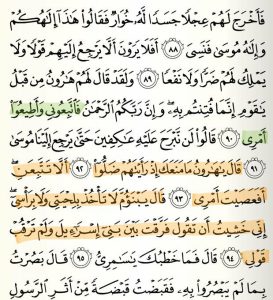 فَأَخْرَجَ لَهُمْ عِجْلًا جَسَدًا لَّهُۥ خُوَارٌ فَقَالُوا۟ هَٰذَآ إِلَٰهُكُمْ
وَإِلَٰهُ مُوسَىٰ فَنَسِىَ ٨٨ أَفَلَا يَرَوْنَ أَلَّا يَرْجِعُ إِلَيْهِمْ قَوْلًا وَلَا
يَمْلِكُ لَهُمْ ضَرًّا وَلَا نَفْعًا ٨٩ وَلَقَدْ قَالَ لَهُمْ هَٰرُونُ مِن قَبْلُ
يَٰقَوْمِ إِنَّمَا فُتِنتُم بِهِۦ وَإِنَّ رَبَّكُمُ ٱلرَّحْمَٰنُ فَٱتَّبِعُونِى وَأَطِيعُوٓا۟
أَمْرِى ٩٠ قَالُوا۟ لَن نَّبْرَحَ عَلَيْهِ عَٰكِفِينَ حَتَّىٰ يَرْجِعَ إِلَيْنَا مُوسَىٰ
٩١ قَالَ يَٰهَٰرُونُ مَا مَنَعَكَ إِذْ رَأَيْتَهُمْ ضَلُّوٓا۟ ٩٢ أَلَّا تَتَّبِعَنِ
أَفَعَصَيْتَ أَمْرِى ٩٣ قَالَ يَبْنَؤُمَّ لَا تَأْخُذْ بِلِحْيَتِى وَلَا بِرَأْسِىٓ
إِنِّى خَشِيتُ أَن تَقُولَ فَرَّقْتَ بَيْنَ بَنِىٓ إِسْرَٰٓءِيلَ وَلَمْ تَرْقُبْ
قَوْلِى ٩٤ قَالَ فَمَا خَطْبُكَ يَٰسَٰمِرِىُّ ٩٥ قَالَ بَصُرْتُ
بِمَا لَمْ يَبْصُرُوا۟ بِهِۦ فَقَبَضْتُ قَبْضَةً مِّنْ أَثَرِ ٱلرَّسُولِ